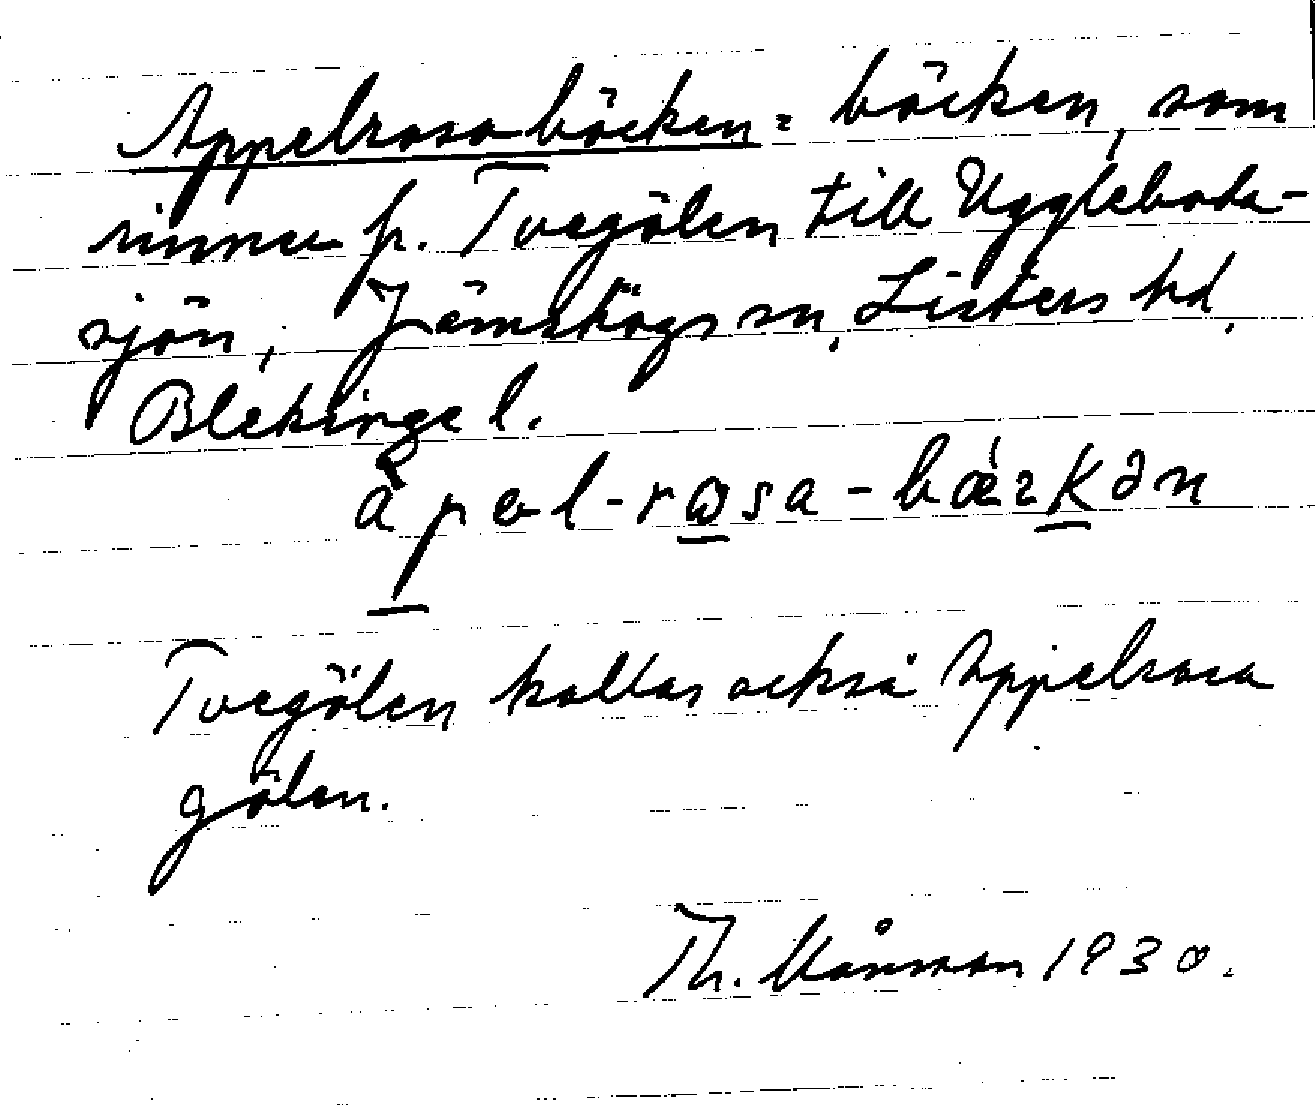 Appelrosabäcken = bäcken, som
rinner fr. Tvegölen till Uggleboda-
sjön, Jämshögs sn, Listers hd,
Blekinge l.
Tvegölen kallas också Appelrosa
gölen.
Th. Månsson 1930.